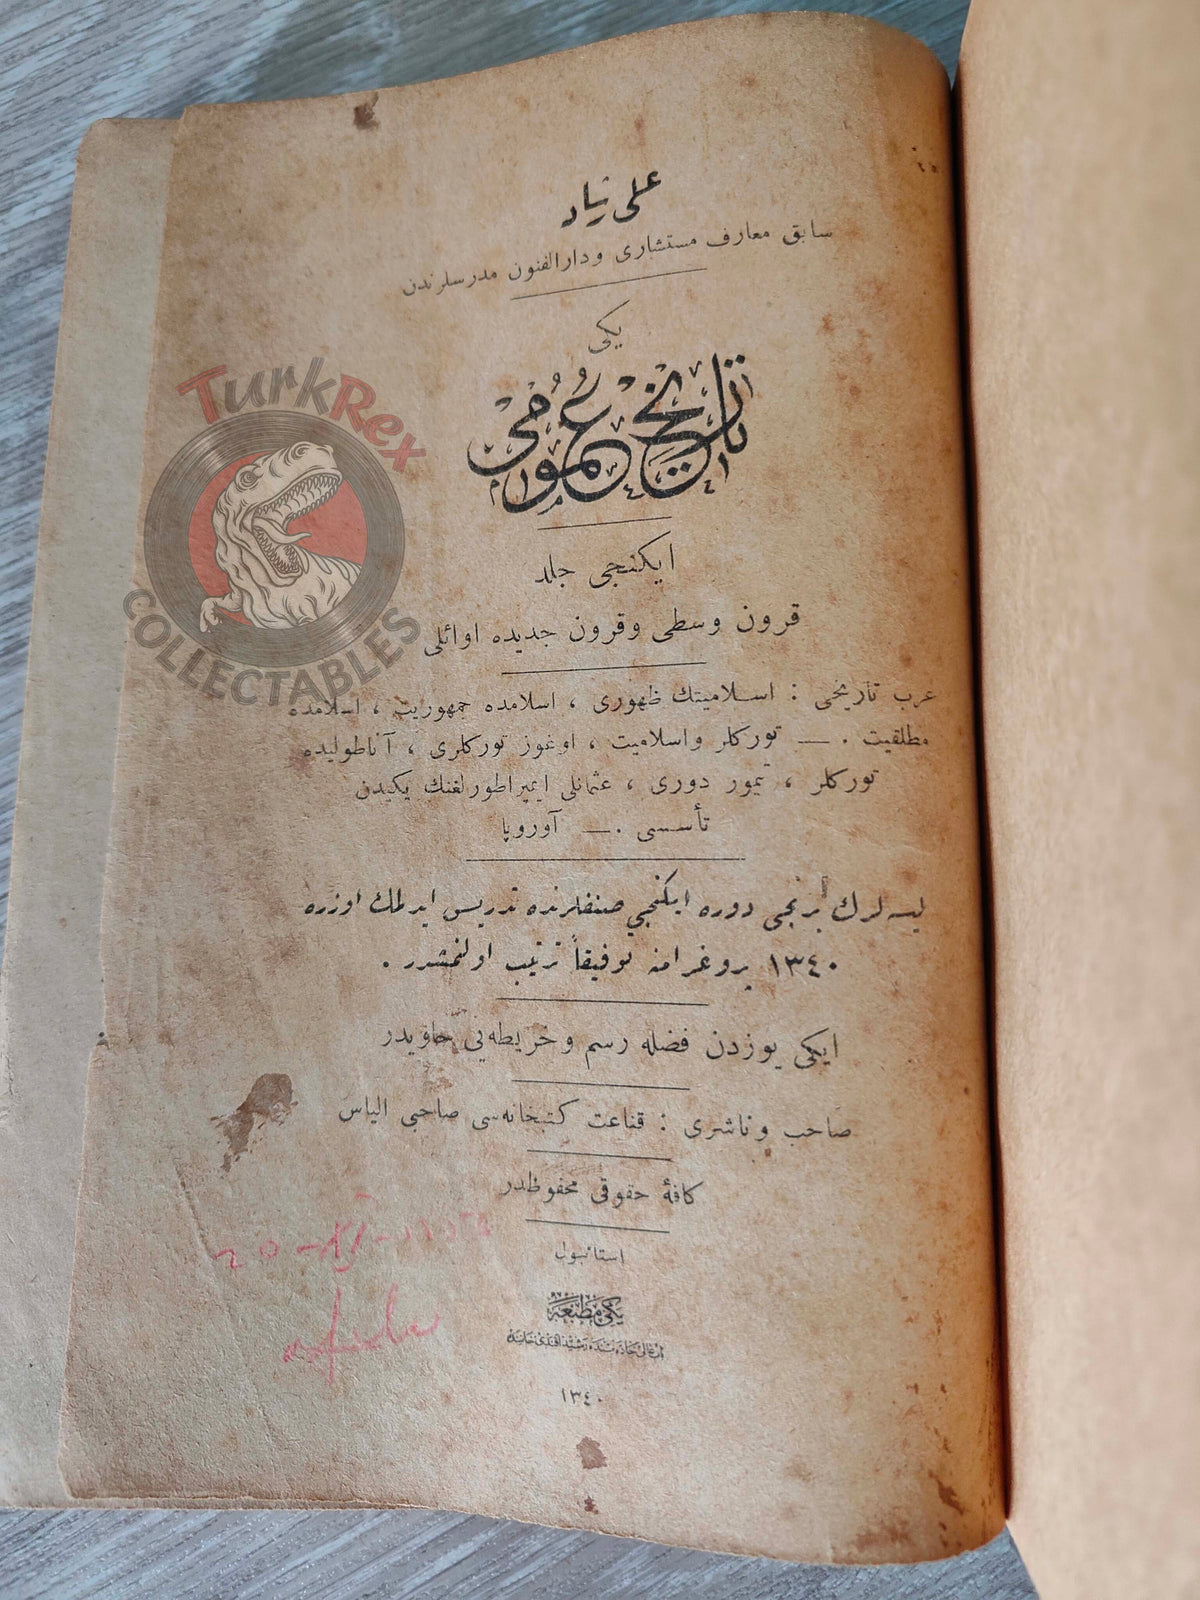 علی رشاد
سابق معارف مستشاری ودارالفنون مدرسلرندن
یکی
تاریخ عمومی
ایکنجی جلد
قرون وسطی وقرون جدیده اوائلی
عرب تاریخی : اسلامیتك ظهوری ، اسلامده جمهوریت ، اسلامده
مطلقیت . — تورکلر واسلامیت ، اوغوز تورکلری ، آناطولیده
تورکلر ، تیمور دوری ، عثمانلی ایمپراطورلغنك یکیدن
تأسسی . — آوروپا
لیسه لرك برنجی دوره ایکنجی صنفلرنده تدریس ایدلمك اوزره
١٣٤٠ پروغرامنه توفیقاً ترتیب اولنمشدر .
ایکی یوزدن فضله رسم وخریطه‌یی حاویدر
صاحب وناشری : قناعت کتبخانه‌سی صاحبی الیاس
کافهٔ حقوقی محفوظدر
استانبول
یکی مطبعه
باب عالی جاده سنده رشید افندی خاننده
١٣٤٠
TurkRex
COLLECTABLES